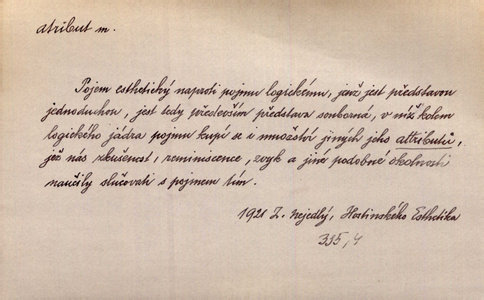 atribut m.
Pojem esthetický naproti pojmu logickému, jenž jest představou
jednoduchou, jest tedy především představa souborná, v níž kolem
logického jádra pojmu kupí se i množství jiných jeho attributů,
jež nás zkušenost, reminiscence, zvyk a jiné podobné okolnosti
naučily slučovati s pojmem tím.
1921 Z. Nejedlý, Hostinského Esthetika
315/4